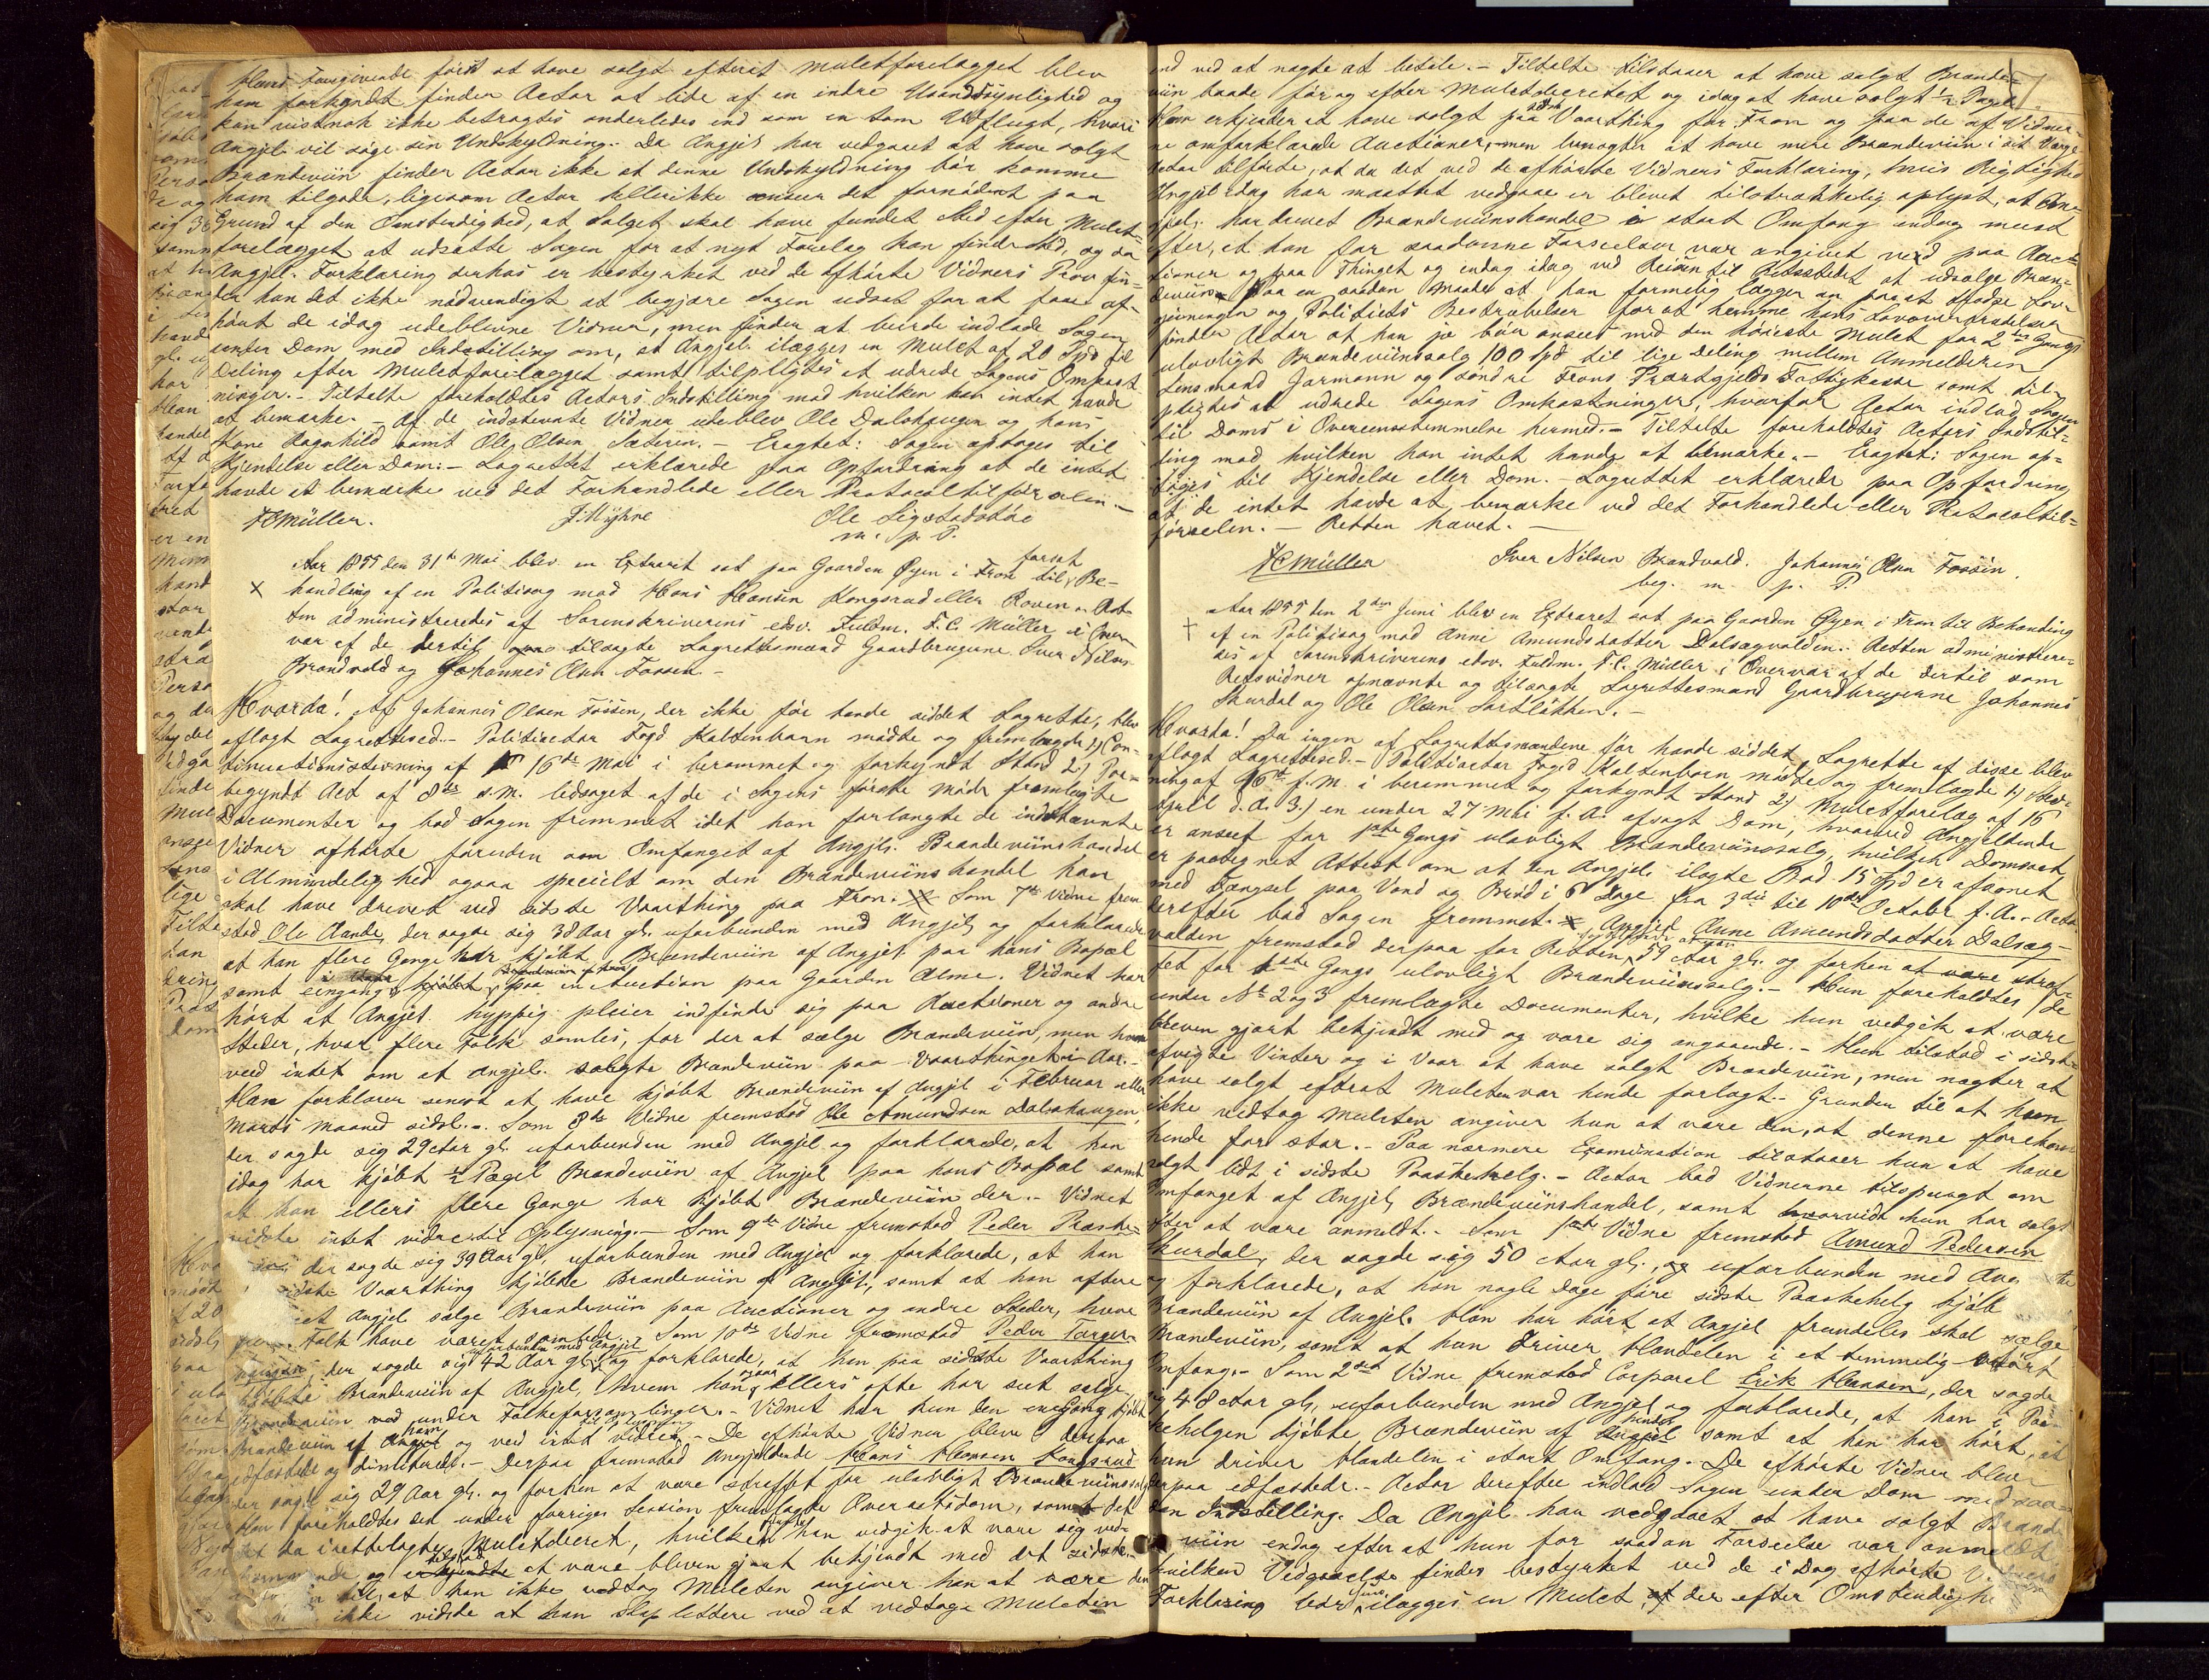 Hans Foregivende først at have solgt efterat Muletforelægget blev
ham forkyndt finder Actor at lide af en indre Usandsynlighed og
kan vistnok ikke betragtes anderledes end som en tom Udflugt, hvori
Angjel. vil søge sin Undskyldning. Da Angjel. har vedgaaet at have solgt
Brændeviin finder Actor ikke at denne Undskyldning bør komme
ham tilgode, ligesom Actor hellerikke anseer det fornødent paa
Grund af den Omstændighed, at Salget skal have fundet Sted efter Mulct-
forelægget at udsætte Sagen for at nyt Forelæg kan finde Sted, og da
Angjel. Forklaring derhos er bestyrket ved de afhørte Vidners Prov fin-
der han det ikke nødvendigt at begjære Sagen udsat for at faae af-
hørt de idag udeblevne Vidner, men finder at burde indlade Sagen
under Dom med Indstilling om, at Angjel. ilægges en Mulct af 20 Spd til
Deling efter Mulctforelægget samt tilpligtes at udrede Sagens Omkost-
ninger. - Tiltalte foreholdtes Actors Indstilling mod hvilken han intet havde
at bemærke. Af de indstevnte Vidner udeblev Ole Dalshaugen og hans
Kone Ragnhild samt Ole Olsen Sæteren. - Eragtet: Sagen optages til
Kjendelse eller Dom: - Lagrettet erklærede paa Opfordring at de intet
havde at bemærke ved det Forhandlede eller Protocoltilførselen. -
FCMüller. J. Myhre Ole Sigstadstøe
m. p. P.
Aar 1855 den 31te Mai blev en Extraret sat paa Gaarden Øyen i Fron til forsat Be-
X handling af en Politisag mod Hans Hansen Kongsrud eller Roven. Ret-
ten administreredes af Sorenskriverens edsv. Fuldm. F. C. Müller i Over-
vær af de dertil tilsagte Lagrettesmænd Gaardbrugerne Iver Nilsen
Brandvold og Johannes Olsen Fossen. -
Hvorda! Af Johannes Olsen Fossen, der ikke før havde siddet Lagrette, blev
aflagt Lagretteseed. - Politiactor Foged Kaltenborn mødte og fremlagde 1) Con-
tinuationsstevning af 16de Mai i berammet og forkyndt Stand 2) Par-
begyndt Act af 8de s. M. ledsaget af de i Sagens første Møde fremlagte
Documenter og bad Sagen fremmet idet han forlangte de indstævnte
Vidner afhørte foruden om Omfanget af Angjels. Brændeviinshandel
i Almindelighed ogsaa specielt om den Brændeviinshandel han
skal have drevet ved sidste Vaarthing paa Fron. Som 7de Vidne frem-
stod Ole Aande, der sagde sig 38 Aar gl. uforbunden med Angjel. og forklarede
at han flere Gange har kjøbt Brændeviin af Angjel. paa hans Bopæl
samt eingang Brændeviin af ham paa en Auction paa Gaarden Alme. Vidnet har
hørt at Angjel. hyppig pleier indfinde sig paa Auctioner og andre
Steder, hvor flere Folk samles, for der at sælge Brændeviin, men
veed intet om at Angjel. solgte Brændeviin paa Vaarthinget i Aar. -
Han forklarer senest at have kjøbt Brændeviin af Angjel i Februar eller
Marts Maaned sidstl. - Som 8de Vidne fremstod Ole Amundsen Dalshaugen,
der sagde sig 29 Aar gl. uforbunden med Angjel. og forklarede, at han
idag har kjøbt ½ Pægel Brændeviin af Angjel paa hans Bopæl samt
at han ellers flere Gange har kjøbt Brændeviin der. - Vidnet
vidste intet videre til Oplysning. - Som 9de Vidne fremstod Peder Præste-
der sagde sig 39 Aar gl. uforbunden med Angjel og forklarede, at han
sidste Vaarthing kjøbte Brændeviin af Angjel., samt at han oftere
seet Angjel sælge Brændeviin paa Auctioner og andre Steder, hvor
Folk have været samlede. Som 10de Vidne fremstod Peder Torger-
der sagde sig 42 Aar gl. uforbunden med Angjel og forklarede, at han paa sidste Vaarthing
kjøbte Brændeviin af Angjel, hvem han ogsaa ellers ofte har seet sælge
Brændeviin ved under Folkeforsamlinger. - Vidnet har kun den engang kjøbt
Brændeviin af ham og ved intet videre til Oplysning. - De afhørte Vidner bleve derpaa
edfæstede og dimitterede. - Derpaa fremstod Angjeldende Hans Hansen Kongsrud
der sagde sig 29 Aar gl. og forhen at være straffet for ulovligt Brændeviinssalg.
Han foreholdtes den under forrige Session fremlagte Overretsdom, samt det
da irettelagte Mulctdecret, hvilket han vedgik at være sig ved-
kommende og tilstod at være bleven gjort bekjendt med det sidste.
til, at han ikke vedtog Mulcten angiver han at være den
ikke vidste at han slap lettere ved at vedtage Mulcten
end ved at nægte at betale. - Tiltalte tilstaaer at have solgt Brænde-
viin baade før og efter Mulctdecretet og idag at have solgt ½ Pægel.
Han erkjender at have solgt paa sidste Vaarthing for Fron og paa de af Vidner-
ne omforklarede Auctioner, men benægter at have mere Brændeviin i sit Værge.
Actor tilførte, at da det ved de afhørte Vidners Forklaring, hvis Rigtighed
Angjel idag har maattet vedgaae er blevet tilstrækkelig oplyst, at An-
gjel. har drevet Brændeviinshandel i stort Omfang endog mest
efter, at han for saadanne Forseelser var angivet ved paa Auc-
tioner og paa Thinget og endog idag ved Reisen til Retsstedet at udsælge Bræn-
deviin paa en saadan Maade at han formelig lægger an paa at spodse Lov-
givningen og Politiets Bestræbelser for at hemme hans Lovovertrædelser
finder Actor at han jo bør ansees med den høieste Mulct for 2den Gangs
ulovligt Brændeviinssalg 100 Spd til lige Deling mellem Anmelderen
Lensmand Jormann og søndre Frons Præstgjelds Fattigkasse samt til-
pligtes at udrede Sagens Omkostninger, hvorfor Actor indlod Sagen
til Doms i Overensstemmelse hermed. - Tiltalte foreholdtes Actors Indstil-
ling mod hvilken han intet havde at bemærke. - Eragtet: Sagen op-
tages til Kjendelse eller Dom. - Lagrettet erklærede paa Opfordring
at de intet havde at bemærke ved det Forhandlede eller Protocoltil-
førselen. - Retten hævet. -
FCMüller Iver Nilsen Brandvold. Johannes Olsen Fossen.
beg. m. p. P.
Aar 1855 den 2den Juni blev en Extraret sat paa Gaarden Øyen i Fron til Behandling
† af en Politisag mod Anne Amundsdatter Dalsægvolden. Retten administrere-
des af Sorenskriverens edsv. Fuldm. F. C. Müller i Overvær af de dertil som
Retsvidner opnævnte og tilsagte Lagrettesmænd Gaardbrugerne Johannes
Skurdal og Ole Olsen Sortløkken. -
Hvorda! Da ingen af Lagrettesmændene før havde siddet Lagrette af disse blev
aflagt Lagretteseed. - Politiactor Foged Kaltenborn mødte og fremlagde 1) Stev-
ning af 16de f. M. i berammet og forkyndt Stand 2) Mulctforelæg af 16
April d. A. 3.) en under 27 Mai f. A. afsagt Dom, hvorved Angjeldende
er anseet for 1ste Gangs ulovligt Brændeviinssalg, hvilken Domsact
er paategnet Attest om at den Angjel. ilagte Bod 15 Spd er afsonet
med Fængsel paa Vand og Brød i 6 Dage fra 3die til 10de October f. A. - Actor
derefter bad Sagen fremmet. Angjel. Anne Amundsdatter Dalsæg-
volden fremstod derpaa for Retten, 59 Aar gl. og forhen at være straf-
fet for 1ste Gangs ulovligt Brændeviinssalg. - Hun foreholdtes de
under No 2 og 3 fremlagte Documenter, hvilke hun vedgik at være
bleven gjort bekjendt med og være sig angaaende. - Hun tilstod i sidst-
afvigte Vinter og i Vaar at have solgt Brændeviin, men nægter at
have solgt efterat Mulcten var hende forelagt. - Grunden til at hun
ikke vedtog Mulcten angiver hun at være den, at denne forekom
hende for stor. - Paa nærmere Examination tilstaaer hun at have
solgt lidt i sidste Paaskehelg. - Actor bad Vidnerne tilspurgt om
Omfanget af Angjel. Brændeviinshandel, samt hvorvidt hun har solgt
efter at være anmeldt. - Som 1ste Vidne fremstod Amund Pedersen
Skurdal, der sagde sig 50 Aar gl., uforbunden med Ang
og forklarede, at han nogle Dage føre sidste Paaskehelg kjøb
Brændeviin af Angjel. Han har hørt at Angjel fremdeles skal sælge
Brændeviin, samt at hun driver Handelen i et temmelig stort
Omfang. - Som 2det Vidne fremstod Corporal Erik Hansen, der sagde
sig 48 Aar gl., uforbunden med Angjel og forklarede, at han i Paa-
skehelgen kjøbte Brændeviin af hende samt at han har hørt, at
hun driver Handelen i stort Omfang. De afhørte Vidner blev
derpaa edfæstede. - Actor derefter indlod Sagen under Dom med saa-
dan Indstilling. Da Angjel. har vedgaaet at have solgt Brænde-
viin endog efter at hun for saadan Forseelse var anmeldt
hvilken Vedgaaelse findes bestyrket ved de i Dag afhørte Vidners
Forklaring bør hun ilægges en Mulct der efter Omstændighe